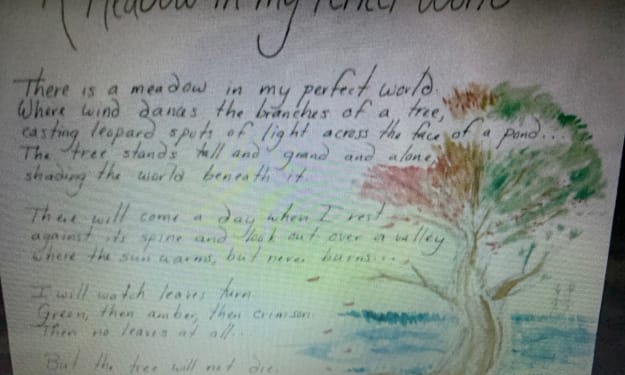 A Meadow in my Perfect World
There is a meadow in my perfect world.
Where wind dances the branches of a tree,
casting leopard spots of light across the face of a pond...
The tree stands tall and grand and alone,
shading the world beneath it
There will come a day when I rest
against its spine and look out over a valley
where the sun warms, but never burns...
I will watch leaves turn
Green, then amber, then crimson
Then no leaves at all...
But the tree will not die